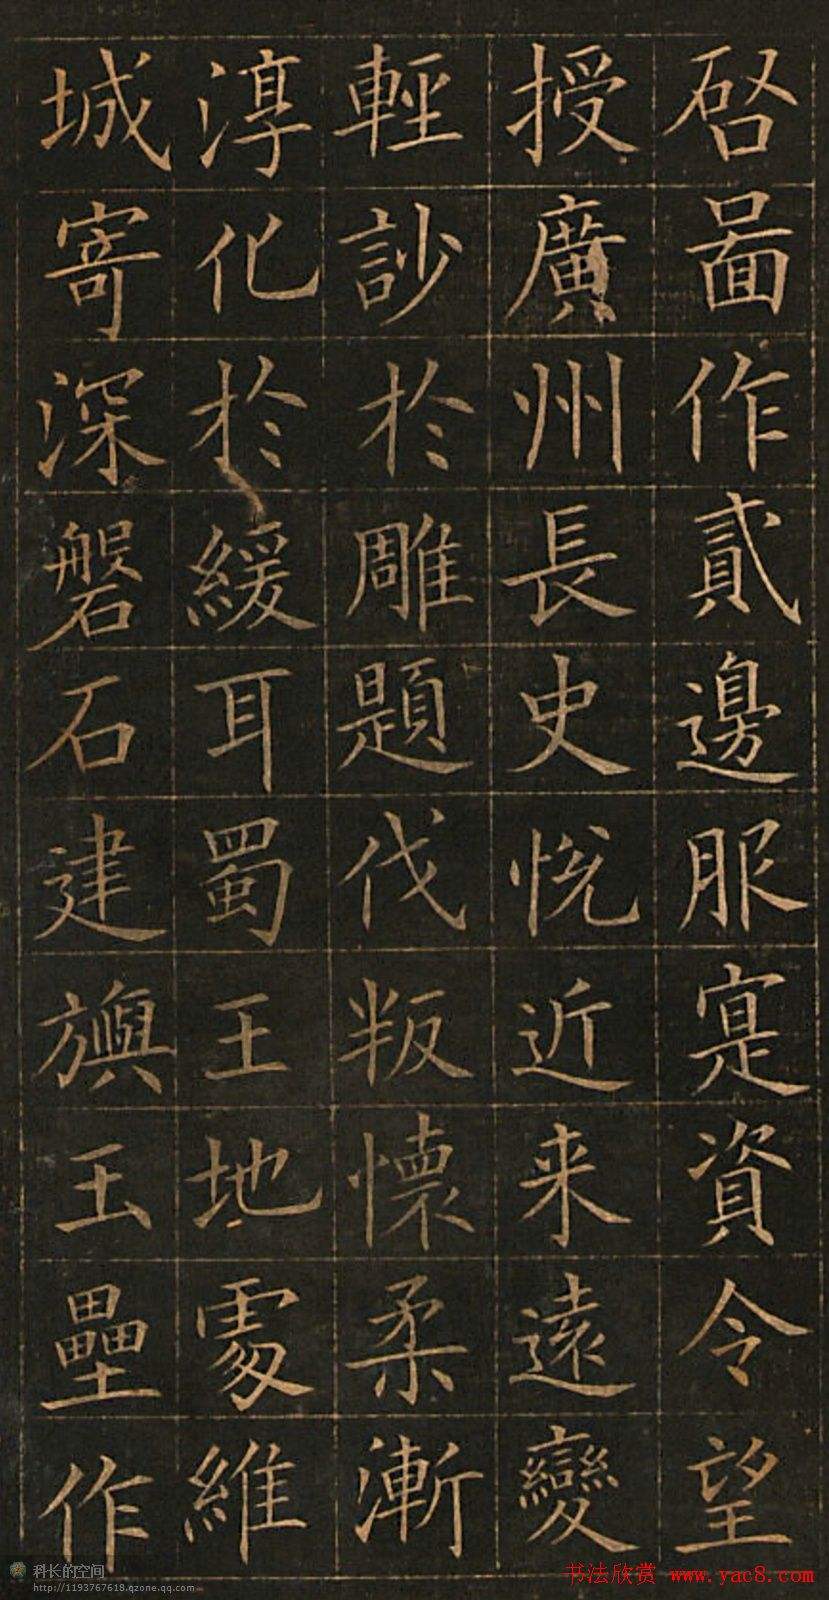 啓啚作貳邊服寔資令望
授廣州長史悅近来遠變
輕訬於雕題伐叛懷柔漸
淳化於緩耳蜀王地處維
城寄深磐石建旟玉壘作
科长的空间
http://1193767618.qzone.qq.com
书法欣赏 www.yac8.com